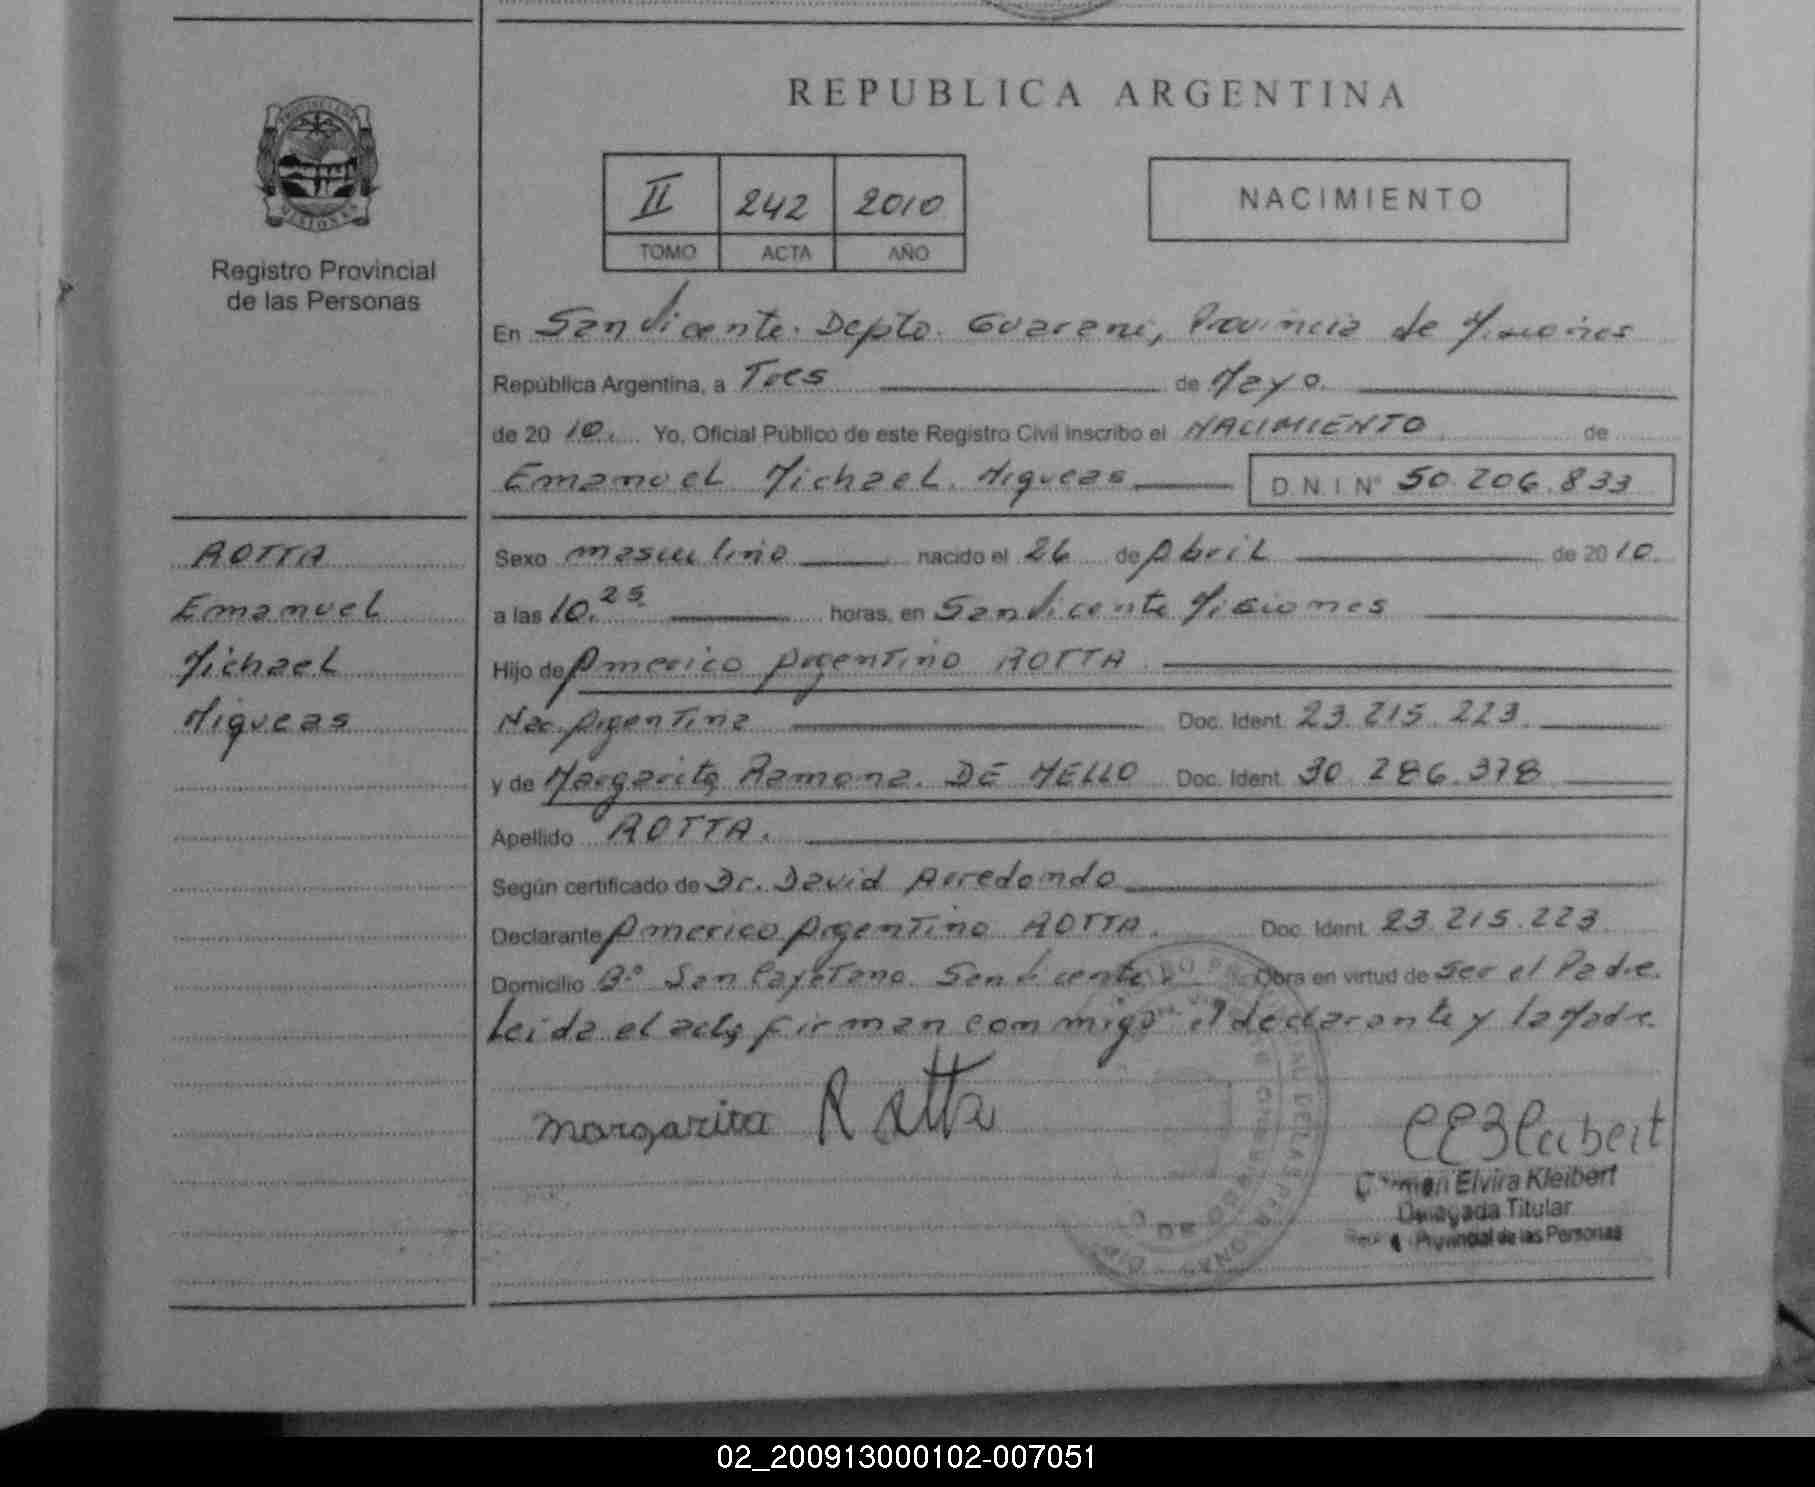 REPUBLICA ARGENTINA
II 242 2010
TOMO ACTA AÑO
NACIMIENTO
Registro Provincial
de las Personas
En San Vicente. Depto. Guarani, Provincia de Misiones
República Argentina, a Tres de Mayo.
de 2010. Yo, Oficial Público de este Registro Civil inscribo el NACIMIENTO de
Emanuel Michael Miqueas D.N.I. Nº 50.206.833
ROTTA
Emanuel
Michael
Miqueas
Sexo masculino nacido el 26 de Abril de 2010.
a las 10.25 horas, en San Vicente Misiones
Hijo de Americo Argentino ROTTA
Nac. Argentina Doc. Ident. 23.215.223.
y de Margarita Ramona. DE MELLO Doc. Ident. 30.286.378
Apellido ROTTA.
Según certificado de Dr. David Arredondo
Declarante Americo Argentino ROTTA. Doc. Ident. 23.215.223.
Domicilio Bº San Cayetano. San Vicente. Obra en virtud de ser el Padre.
Leida el acta firman conmigo el declarante y la Madre.
Margarita Rotta
CEKleibert
Carmen Elvira Kleibert
Delegada Titular
Provincial de las Personas
02_200913000102-007051